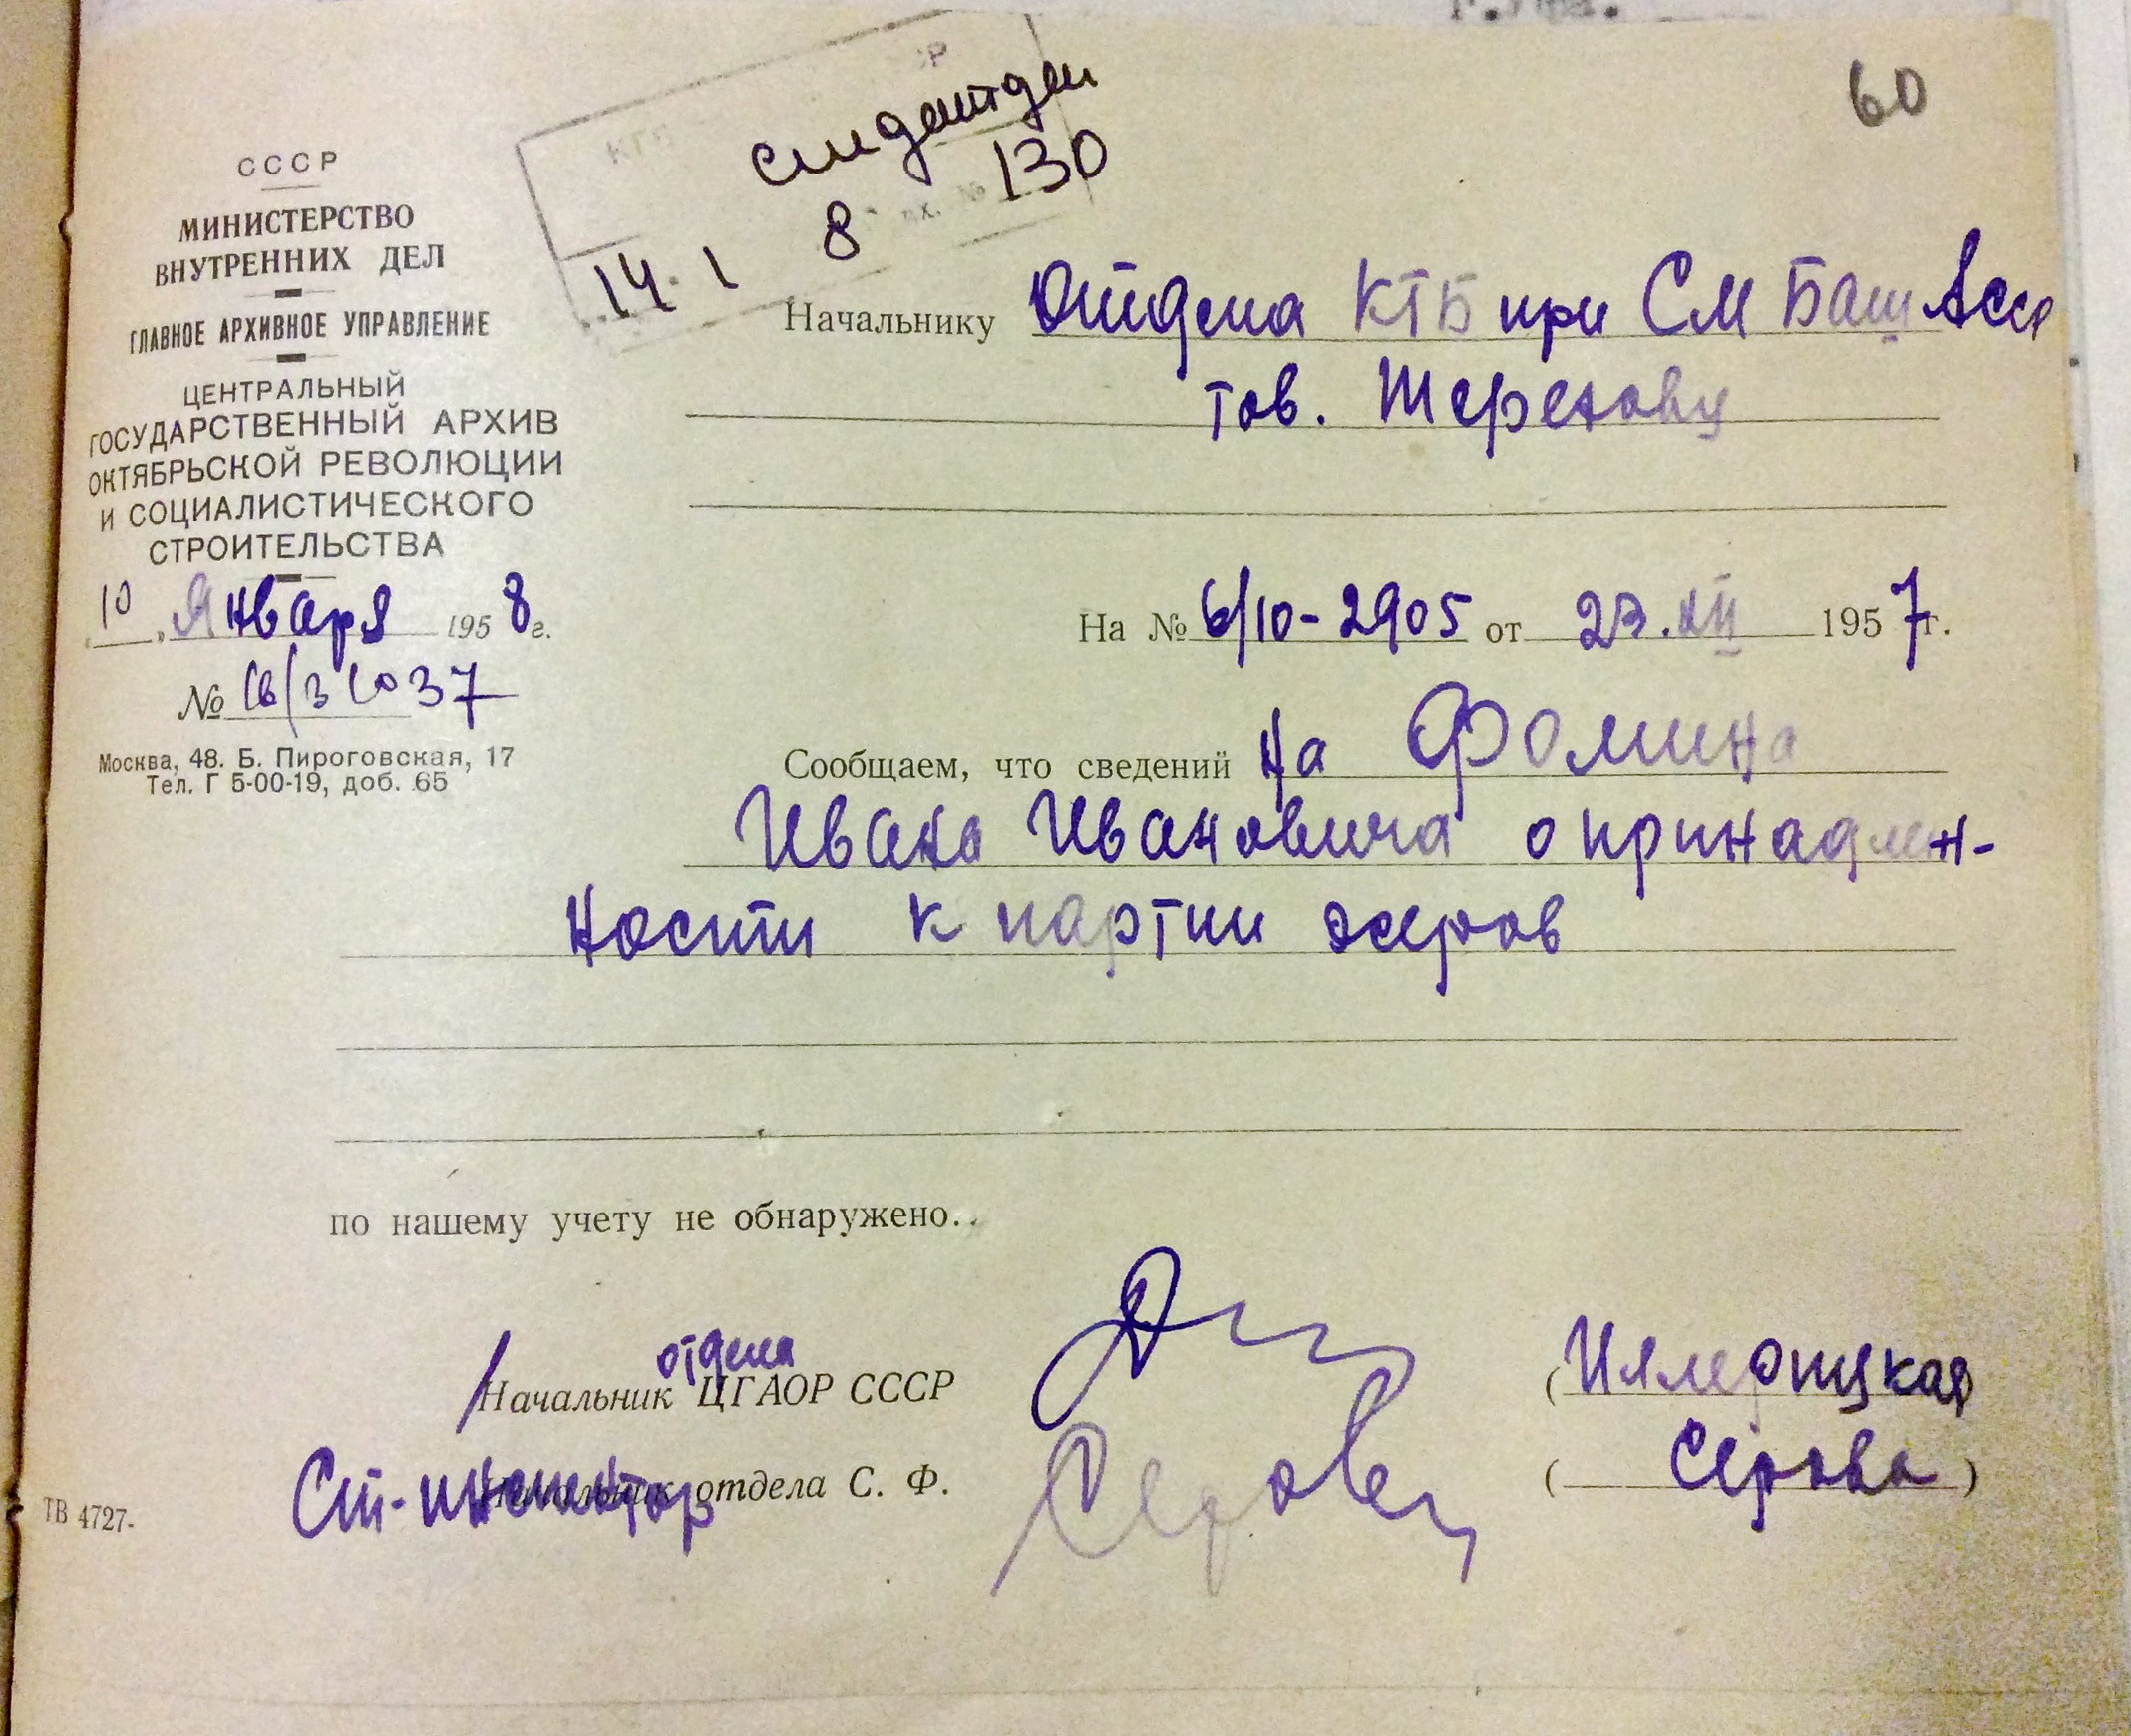 60
14. 1 8 вх. № 130
СССР
МИНИСТЕРСТВО
ВНУТРЕННИХ ДЕЛ
ГЛАВНОЕ АРХИВНОЕ УПРАВЛЕНИЕ
ЦЕНТРАЛЬНЫЙ
ГОСУДАРСТВЕННЫЙ АРХИВ
ОКТЯБРЬСКОЙ РЕВОЛЮЦИИ
И СОЦИАЛИСТИЧЕСКОГО
СТРОИТЕЛЬСТВА
10 января 1958г.
№
Москва, 48. Б. Пироговская, 17
Тел. Г 5-00-19, доб. 65
Начальнику Отдела КГБ при СМ Баш Асср
тов.
На № 6/10-2905 от 23.XII 1957г.
Сообщаем, что сведений на Фомина
Ивана Ивановича о принадлеж-
ности к партии эсеров
по нашему учету не обнаружено.
Начальник отдела ЦГАОР СССР
Ст. инспектор отдела С. Ф. Серова (Серова)
ТВ 4727-